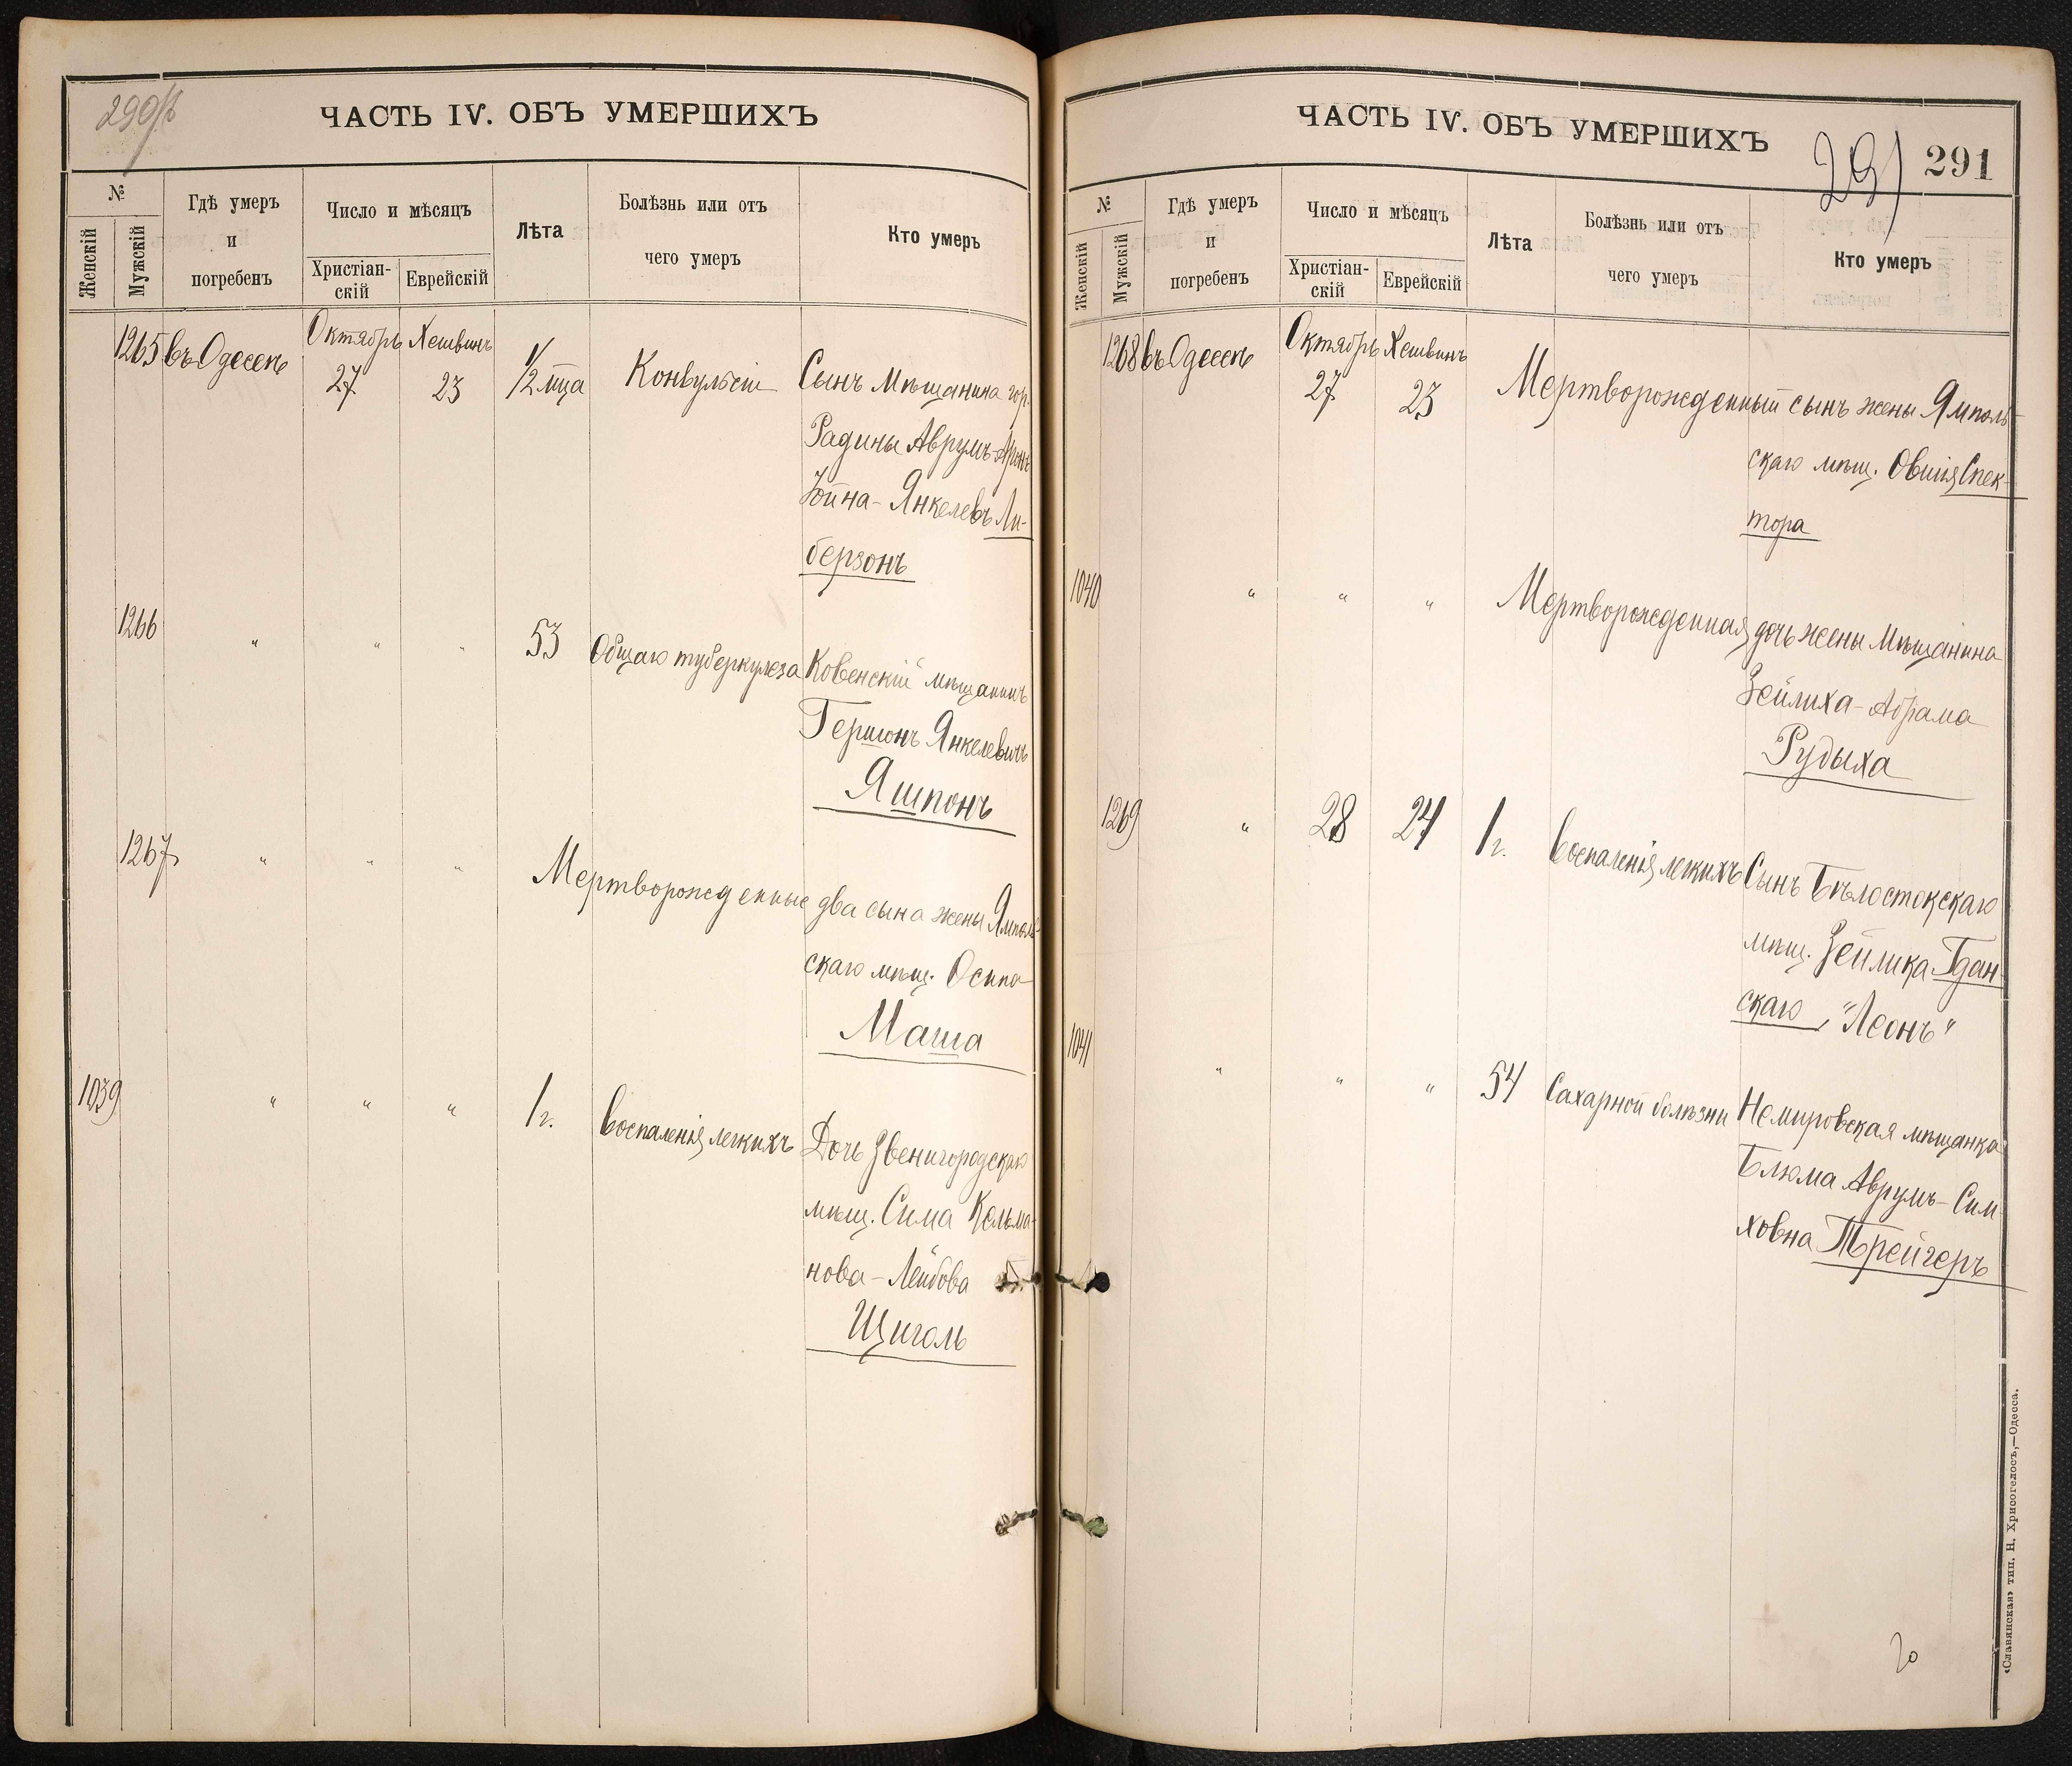 290 об
ЧАСТЬ IV. ОБЪ УМЕРШИХЪ
№
Женскій
Мужскій
Гдѣ умеръ
и
погребенъ
Число и мѣсяцъ
Христіан-
скій
Еврейскій
Лѣта
Болѣзнь или отъ
чего умеръ
Кто умеръ
1265 въ Одессѣ Октябрь 27 Хешвинъ 23 1/2 мца Конвульсіи Сынъ мѣщанина гор.
Радины Аврумъ-Аронъ
Іойна-Янкелевъ Ли-
берзонъ
1266 " " " 53 Общаго туберкулеза Ковенскій мѣщанинъ
Гершонъ Янкелевичъ
Яшпонъ
1267 " " " Мертворожденные два сына жены Ямполь
скаго мѣщ. Осипа
Маша
1039 " " " 1 г. Воспаленія легкихъ Дочь Звенигородскаго
мѣщ. Сима Кельма-
нова-Лейбова
Щиголь
ЧАСТЬ IV. ОБЪ УМЕРШИХЪ
291
291
№
Женскій
Мужскій
Гдѣ умеръ
и
погребенъ
Число и мѣсяцъ
Христіан-
скій
Еврейскій
Лѣта
Болѣзнь или отъ
чего умеръ
Кто умеръ
1268 въ Одессѣ Октябрь 27 Хешвинъ 23 Мертворожденный сынъ жены Ямполь-
скаго мѣщ. Овшія Спек-
тора
1040 " " " Мертворожденная дочь жены мѣщанина
Зейлиха-Абрама
Рудыха
1269 " 28 24 1 г. Воспаленія легкихъ Сынъ Бѣлостокскаго
мѣщ. Зейлика Гдан-
скаго, "Леонъ"
1041 " " " 54 Сахарной болѣзни Немировская мѣщанка
Блюма Аврумъ-Сим
ховна Трейгеръ
«Славянская» тип. Н. Хрисогелосъ,—Одесса.